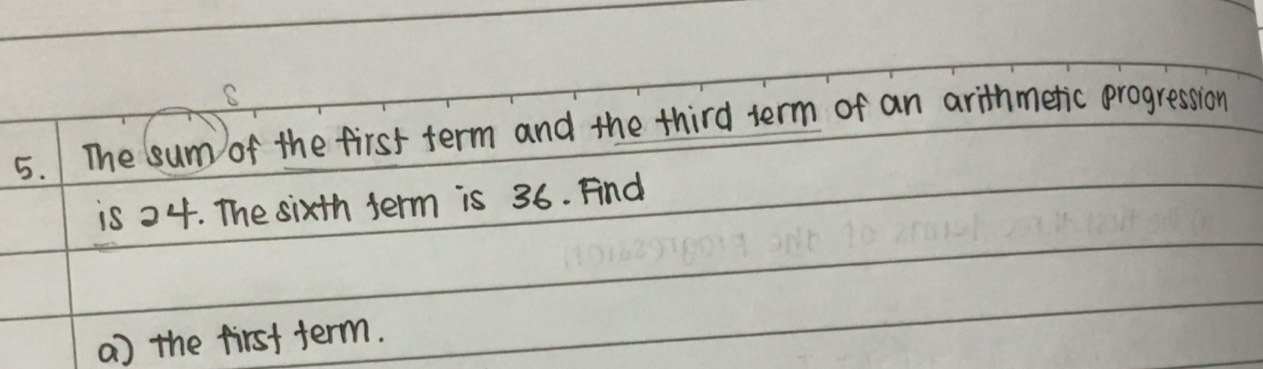 S
5. The sum of the first term and the third term of an arithmetic progression
is 24. The sixth term is 36. Find
a) the first term.